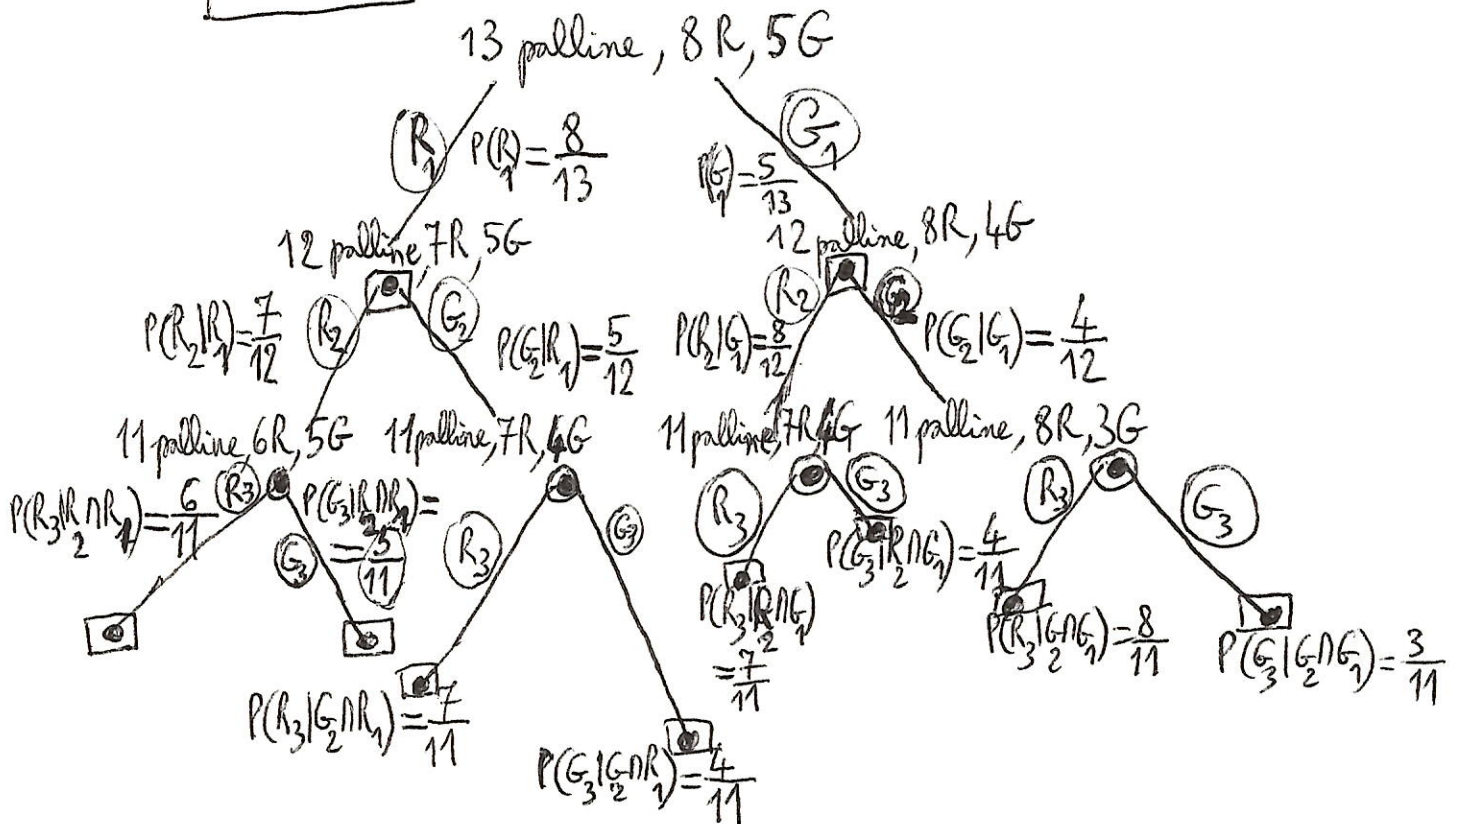 13 palline, 8R, 5G
R₁ P(R₁) = 8/13
G₁ P(G₁) = 5/13
12 palline, 7R, 5G
12 palline, 8R, 4G
P(R₂|R₁) = 7/12 R₂ G₂ P(G₂|R₁) = 5/12
P(R₂|G₁) = 8/12 R₂ G₂ P(G₂|G₁) = 4/12
11 palline, 6R, 5G
11 palline, 7R, 4G
11 palline, 7R 4G
11 palline, 8R, 3G
P(R₃|R₂∩R₁) = 6/11 R₃ G₃ P(G₃|R₂∩R₁) =
= 5/11
R₃ G₃
R₃ G₃ P(G₃|R₂∩G₁) = 4/11
R₃ G₃
P(R₃|G₂∩R₁) = 7/11
P(G₃|G₂∩R₁) = 4/11
P(R₃|R₂∩G₁)
= 7/11
P(R₃|G₂∩G₁) = 8/11
P(G₃|G₂∩G₁) = 3/11